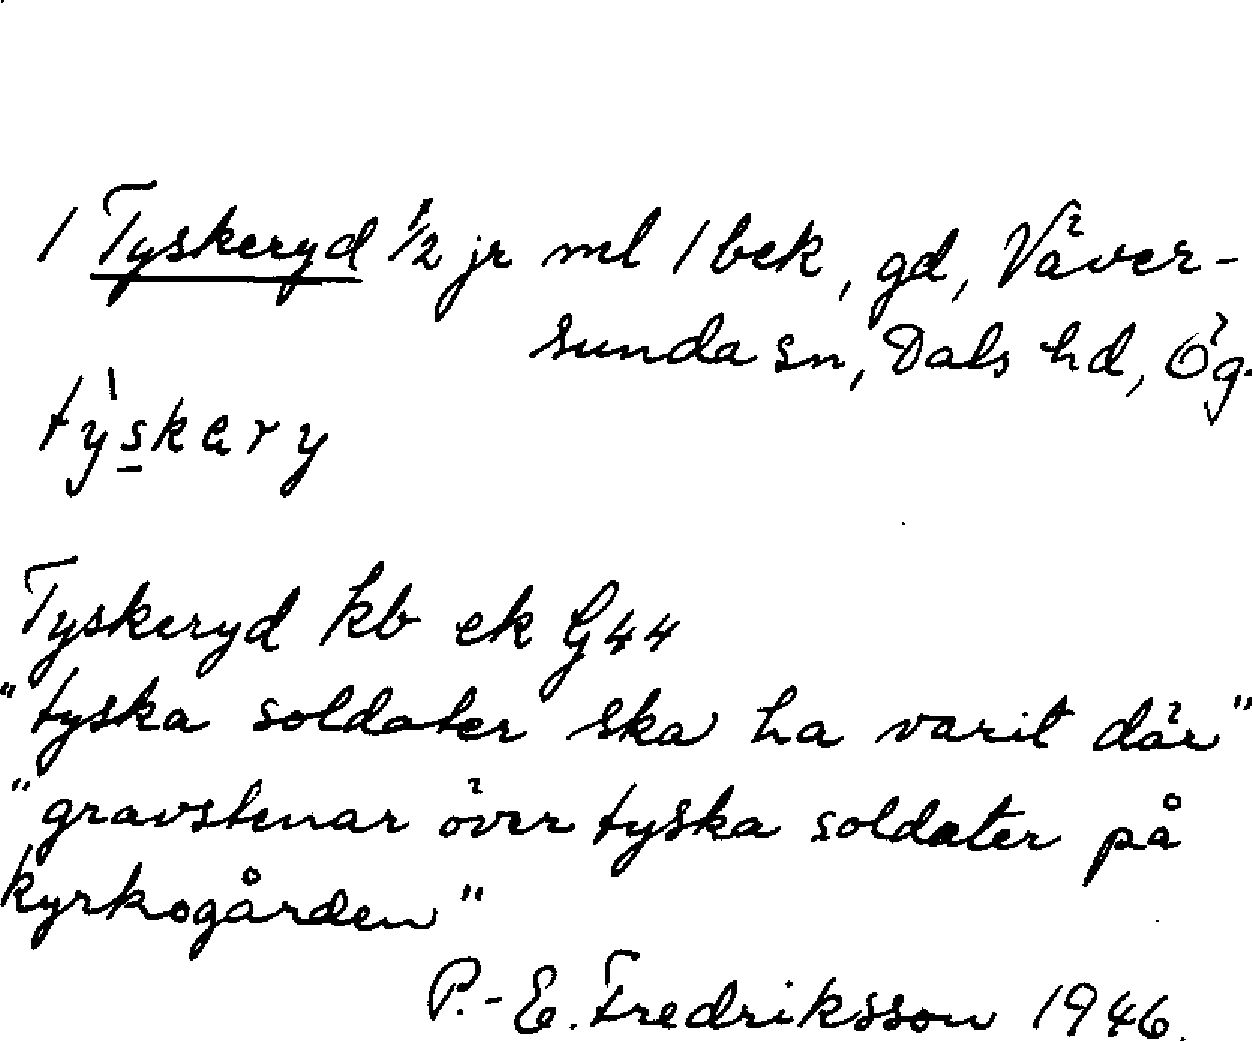 1 Tyskeryd 1/2 jr ml 1 bek, gd, Väver-
sunda sn, Dals hd, Ög.
tỳ̲skery
Tyskeryd kb ek G44
"tyska soldater ska ha varit där"
"gravstenar över tyska soldater på
kyrkogården"
P.-E. Fredriksson 1946.